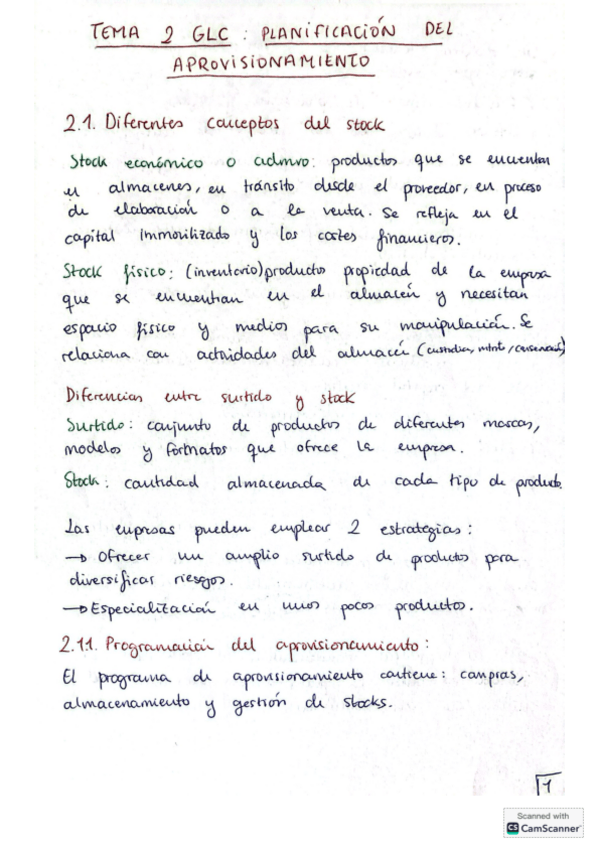 TEMA 2 GLC : PLANIFICACIÓN DEL
APROVISIONAMIENTO
2.1. Diferentes conceptos del stock
Stock económico o admvo: productos que se encuentran
en almacenes, en tránsito desde el proveedor, en proceso
de elaboración o a la venta. Se refleja en el
capital immovilizado y los costes financieros.
Stock físico: (inventario) productos propiedad de la empresa
que se encuentran en el almacén y necesitan
espacio físico y medios para su manipulación. Se
relaciona con actividades del almacén (custodia,
Diferencias entre surtido y stock
Surtido: conjunto de productos de diferentes marcas,
modelos y formatos que ofrece la empresa.
Stock: cantidad almacenada de cada tipo de producto.
Las empresas pueden emplear 2 estrategias:
→ Ofrecer un amplio surtido de productos para
diversificar riesgos.
→ Especialización en unos pocos productos.
2.1.1. Programación del aprovisionamiento:
El programa de aprovisionamiento contiene: compras,
almacenamiento y gestión de stocks.
1
Scanned with
CS CamScanner